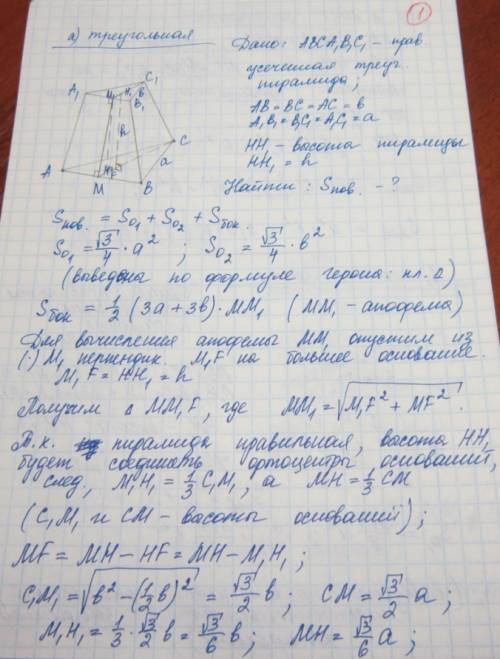 1
а) треугольная
Дано: ABCA₁B₁C₁ – прав.
усеченная треуг.
пирамида;
AB = BC = AC = в
A₁B₁ = B₁C₁ = A₁C₁ = a
HH₁ – высота пирамиды
HH₁ = h
Найти: Sпов. – ?
A₁ M₁ H₁ в C₁
B₁
h
C
a
A H F
M B
Sпов. = S₀₁ + S₀₂ + Sбок.
S₀₁ = √3/4 · a² ; S₀₂ = √3/4 · в²
(выведена по формуле герона: пл. Δ)
Sбок = 1/2 (3a + 3в) · MM₁ (MM₁ – апофема)
Для вычисления апофемы MM₁ опустим из
(·) M₁ перпендик. M₁F на большее основание.
M₁F = HH₁ = h
Получим Δ MM₁F, где MM₁ = √(M₁F² + MF²).
Т.к. пирамида правильная, высота HH₁
будет соединять ортоцентры оснований,
след., M₁H₁ = 1/3 C₁M₁, а MH = 1/3 CM
(C₁M₁ и CM – высоты оснований);
MF = MH – HF = MH – M₁H₁ ;
C₁M₁ = √(в² – (1/2 в)²) = √3/2 в ; CM = √3/2 a ;
M₁H₁ = 1/3 · √3/2 в = √3/6 в ; MH = √3/6 a ;